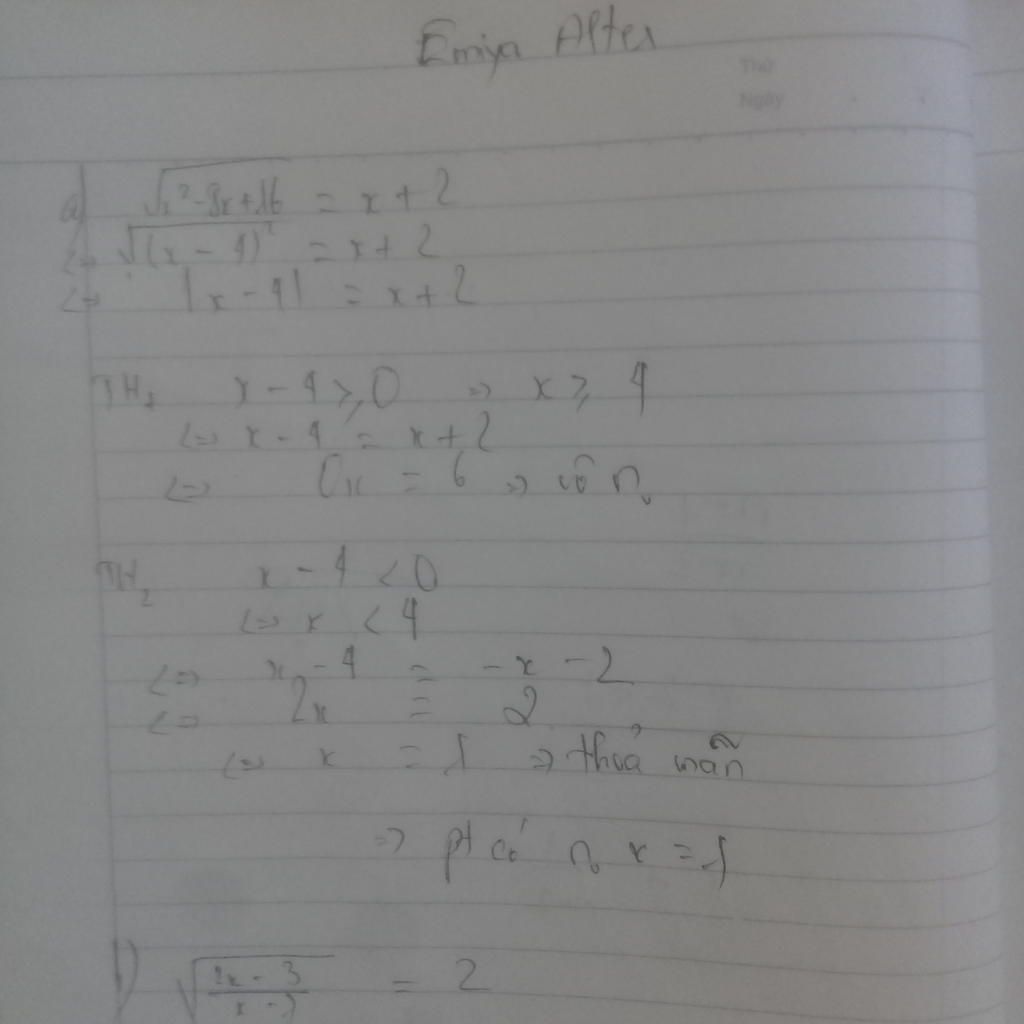 Emiya Alter
Thứ
Ngày
a) √(x²-8x+16) = x + 2
<=> √((x - 4)²) = x + 2
<=> |x - 4| = x + 2
TH1 x - 4 ≥ 0 => x ≥ 4
<=> x - 4 = x + 2
<=> 0x = 6 => vô n0
TH2 x - 4 < 0
<=> x < 4
<=> x - 4 = -x - 2
<=> 2x = 2
<=> x = 1 => thoả mãn
=> pt có n0 x = 1
b) √((2x - 3)/(x - 1)) = 2